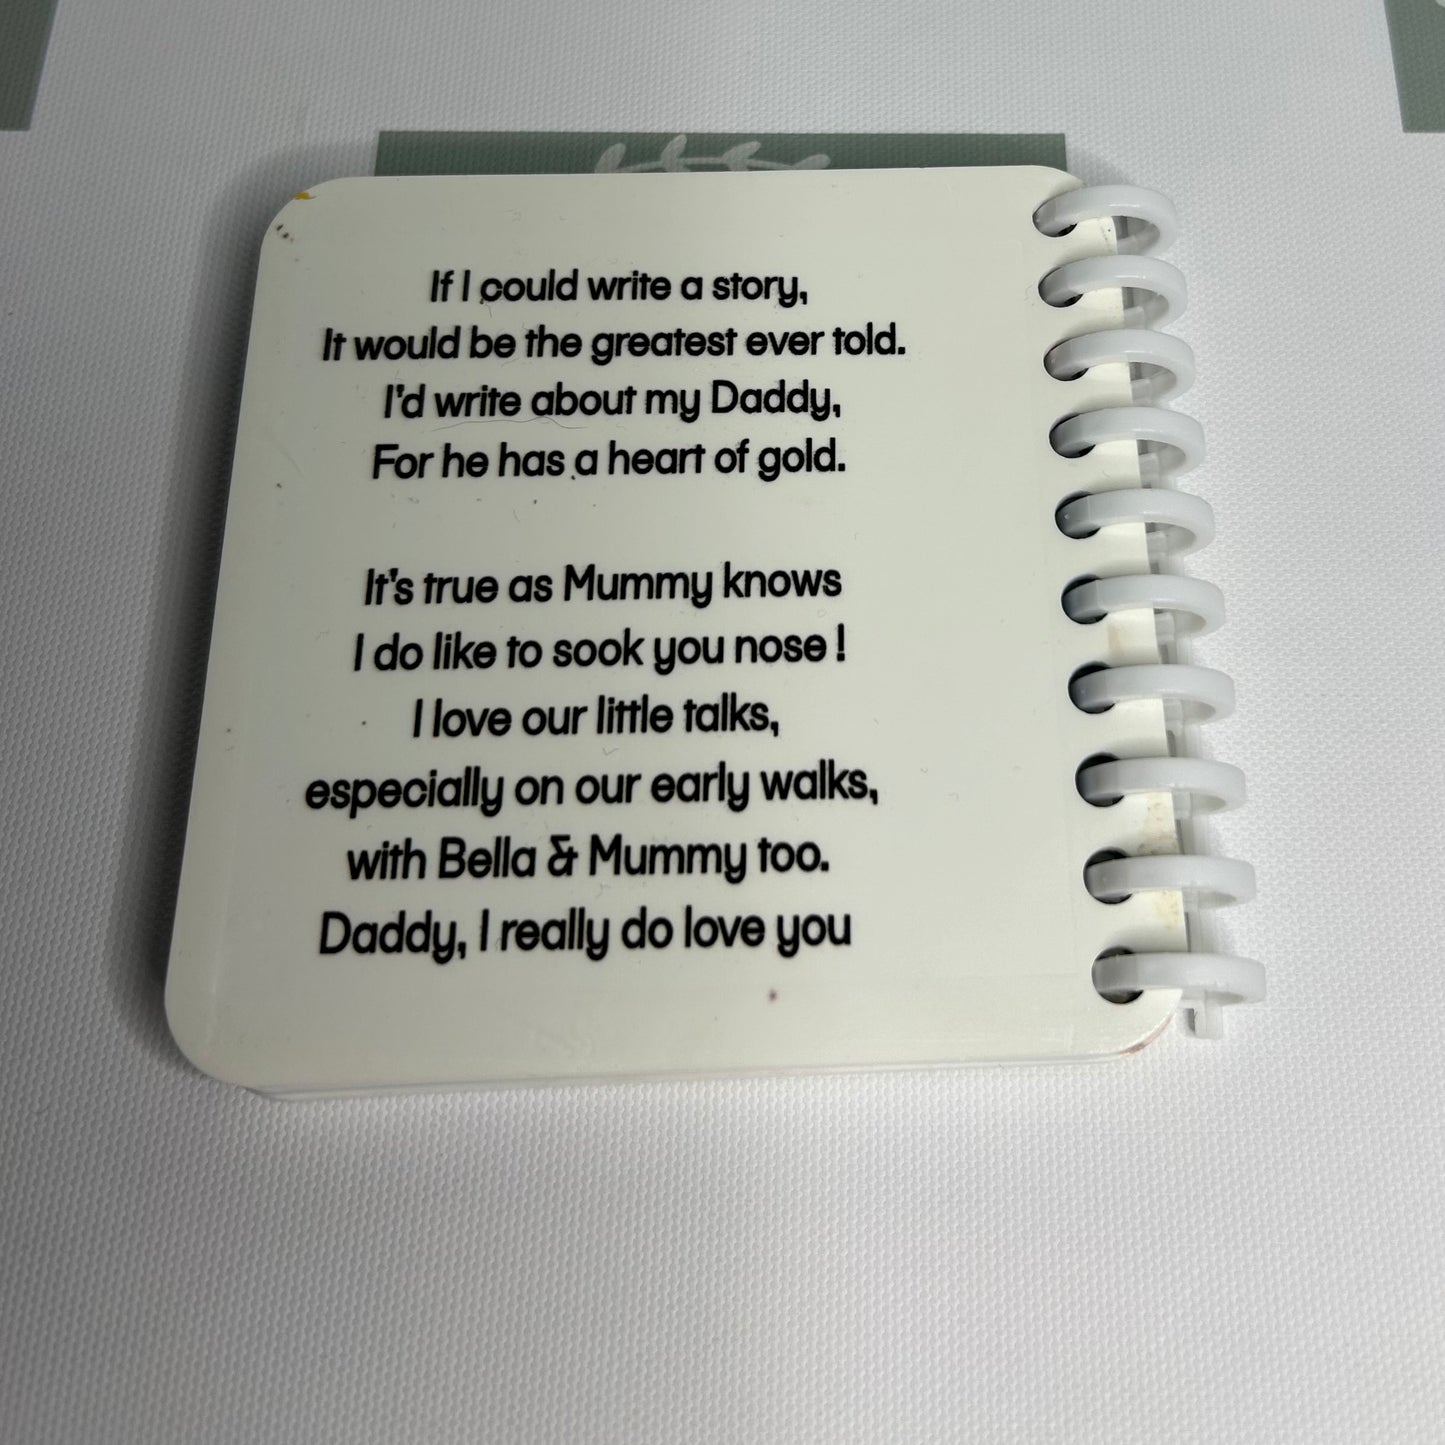 If I could write a story,
It would be the greatest ever told.
I'd write about my Daddy,
For he has a heart of gold.
It's true as Mummy knows
I do like to sook you nose !
I love our little talks,
especially on our early walks,
with Bella & Mummy too.
Daddy, I really do love you